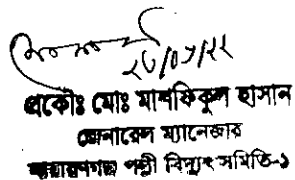 ২৮/০৮/২২
প্রকৌঃ মোঃ মাশফিকুল হাসান
জেনারেল ম্যানেজার
নারায়ণগঞ্জ পল্লী বিদ্যুৎ সমিতি-১